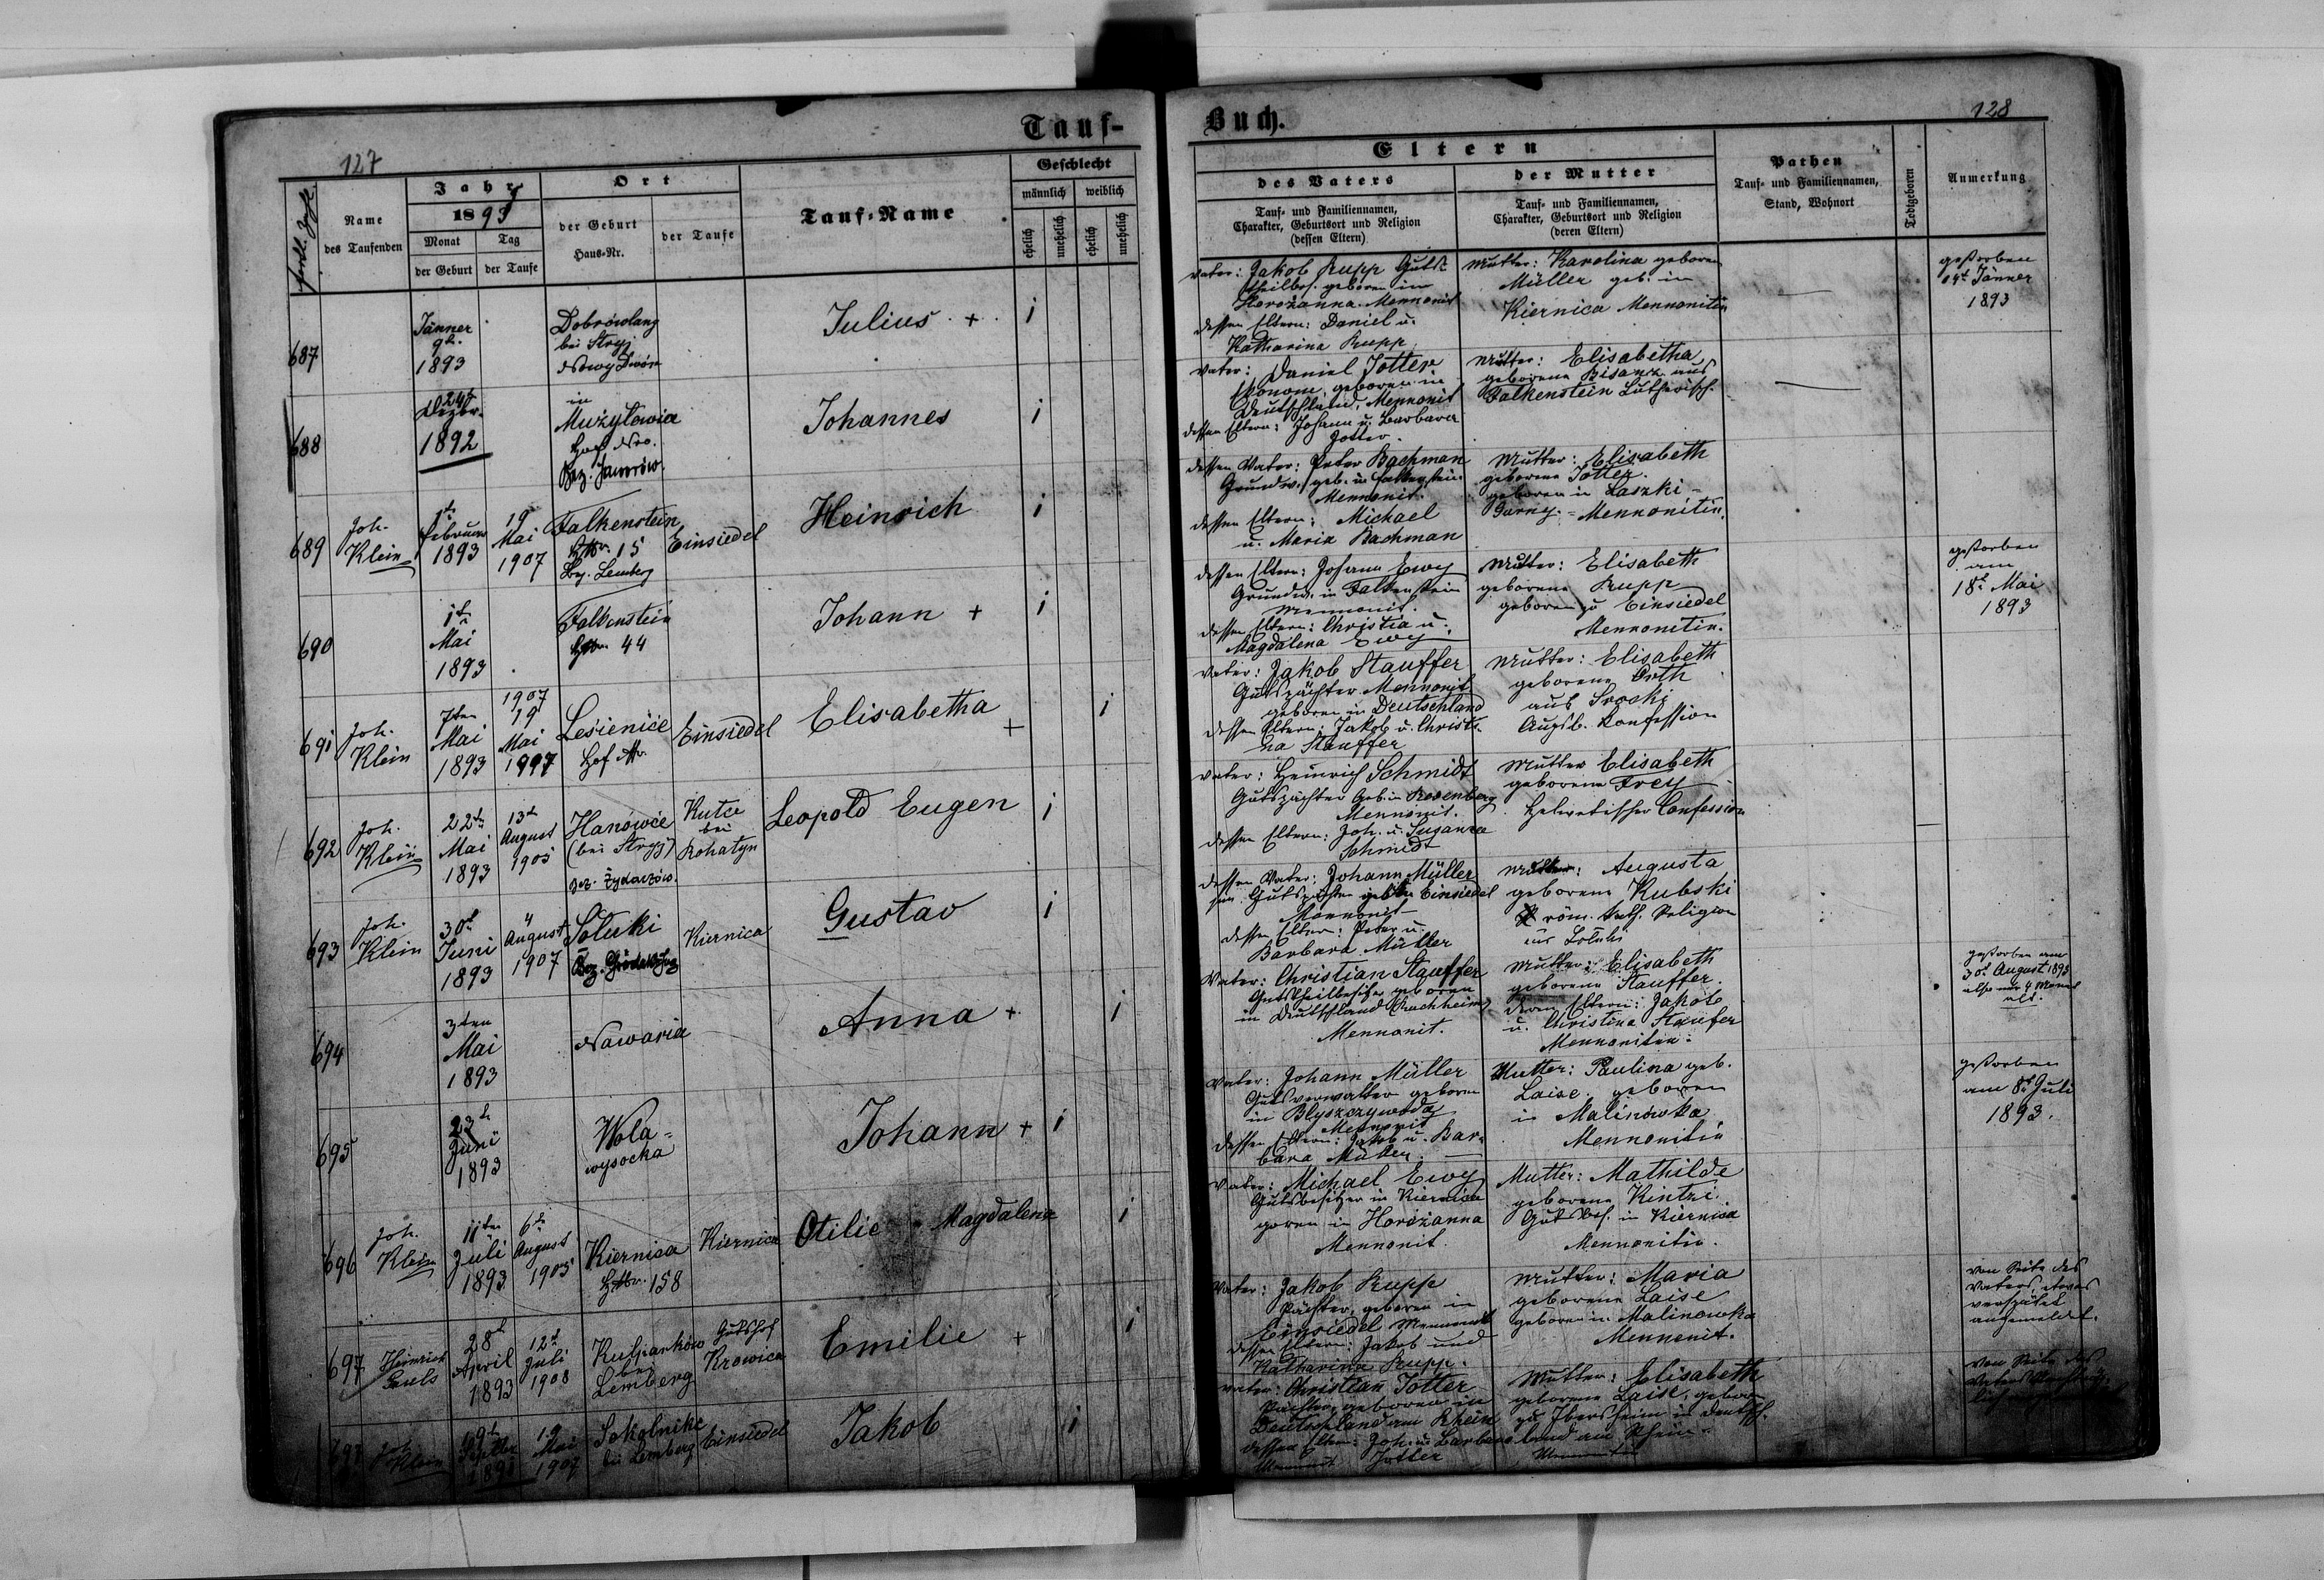 127
Tauf-
Buch.
128
Name
des Taufenden
Jahr
1893
Monat
Tag
der Geburt
der Taufe
Ort
der Geburt
Haus-Nr.
der Taufe
Tauf-Name
Geschlecht
männlich
weiblich
ehelich
unehelich
ehelich
unehelich
Eltern
des Vaters
Tauf- und Familiennamen,
Charakter, Geburtsort und Religion
(dessen Eltern)
der Mutter
Tauf- und Familiennamen,
Charakter, Geburtsort und Religion
(deren Eltern)
Pathen
Tauf- und Familiennamen,
Stand, Wohnort
Todtgeboren
Anmerkung
687
Jänner
9t.
1893
bei Stryj
Julius +
i
Vater: Jakob Rupp
geboren in
Horożanna Mennonit
dessen Eltern: Daniel u.
Katharina Rupp
Mutter: Karolina geborene
Müller geb. in
Kiernica Mennonitin
gestorben
Jänner
1893
688
24t
Dezbr.
1892
in
Mużyłowia
Hof Nro.
Bez. Jaworów.
Johannes
i
Vater: Daniel Jotter
Ökonom, geboren in
Deutschland, Mennonit
dessen Eltern: Johann u. Barbara
Jotter.
Mutter: Elisabetha
geborene Bisanz aus
Falkenstein Lutherisch.
689
Joh.
Klein
1t
Februar
1893
19
Mai
1907
Falkenstein
HNr. 15
Bez. Lemberg
Einsiedel
Heinrich
i
dessen Vater: Peter Bachman
Grundw. geb. in Falkenstein
Mennonit.
dessen Eltern: Michael
u. Maria Bachman
Mutter: Elisabeth
geborene Jotter.
geboren in Laszki-
Mennonitin.
690
1t
Mai
1893
Falkenstein
HNr. 44
Johann +
i
dessen Eltern: Johann Ewy
Grundw. in Falkenstein
Mennonit.
dessen Eltern: Christia u.
Magdalena Ewy
Mutter: Elisabeth
geborene Rupp
geboren zu Einsiedel
Mennonitin.
gestorben
am
18t Mai
1893
691
Joh.
Klein
7ten
Mai
1893
1907
19
Mai
1907
Leśienice
Hof Nr.
Einsiedel
Elisabetha
+
i
Vater: Jakob Stauffer
Gutspächter Mennonit
geboren in Deutschland
dessen Eltern: Jakob u. Christi-
na Stauffer
Mutter: Elisabeth
geborene Orth
aus Sroki
Augsb. Konfession
692
Joh.
Klein
22t
Mai
1893
13t
August
1905
Hanowce
(bei Stryj)
bez. Żydaczów.
Kutce
bei
Rohatyn
Leopold Eugen
i
Vater: Heinrich Schmidt
Gutspächter Geb. in Rosenberg
Mennonit.
dessen Eltern: Joh. u. Susanna
Schmidt
Mutter Elisabeth
geborene Frey
Helvetischer Confession
693
Joh.
Klein
30t
Juni
1893
4
August
1907
Kiernica
Gustav
i
dessen Vater: Johann Müller
Einsiedel
Mennonit
dessen Eltern: Peter u.
Barbara Müller
Mutter: Augusta
geborene Kubski
röm. kath. Religion
694
3ten
Mai
1893
Nawaria
Anna +
i
Vater: Christian Stauffer
Gutstheilbesitzer geboren
in Deutschland
Mennonit.
Mutter: Elisabeth
geborene Stauffer.
deren Eltern: Jakob
u. Christina Staufer
Mennoniten.
gestorben am
30t August 1893
alt.
695
23t
Juni
1893
Wola-
wysocka
Johann +
i
Vater: Johann Müller
Gutsverwalter geboren
in Błyszczywody
Mennonit
dessen Eltern: Jakob u. Bar-
bara Müller.
Mutter: Paulina geb.
Laise, geboren
in Malinówka
Mennonitin
gestorben
am 8t Juli
1893.
696
Joh.
Klein
11ten
Juli
1893
6t
August
1905
Kiernica
HNr. 158
Kiernica
Otilie Magdalena
i
Vater: Michael Ewy
Gutsbesitzer in Kiernica
goren in Horożanna
Mennonit.
Mutter: Mathilde
geborene Kintzi.
Gutsbes. in Kiernica
Mennonitin.
697
Heinrich
Pauls
28t
April
1893
12t
Juli
1908
Kulparków
bei
Lemberg
Gutshof
Krowica
Emilie +
i
Vater: Jakob Rupp
Pächter, geboren in
Einsiedel Mennonit
dessen Eltern: Jakob und
Katharina Rupp.
Mutter: Maria
geborene Laise
geboren in Malinówka
Mennonit.
von Seite des
Vaters etwas
verspätet
angemeldet.
Joh.
Klein
19t
1891
19
Mai
1907
Sokolniki
bei Lemberg
Einsiedel
Jakob
i
Vater: Christian Jotter
Pächter, geboren in
Deutschland am Rhein
dessen Eltern: Joh. u. Barbara
Jotter
Mutter: Elisabeth
geborene Laise, geboren
zu Ibersheim in Deutsch-
land am Rhein
Von Seite des